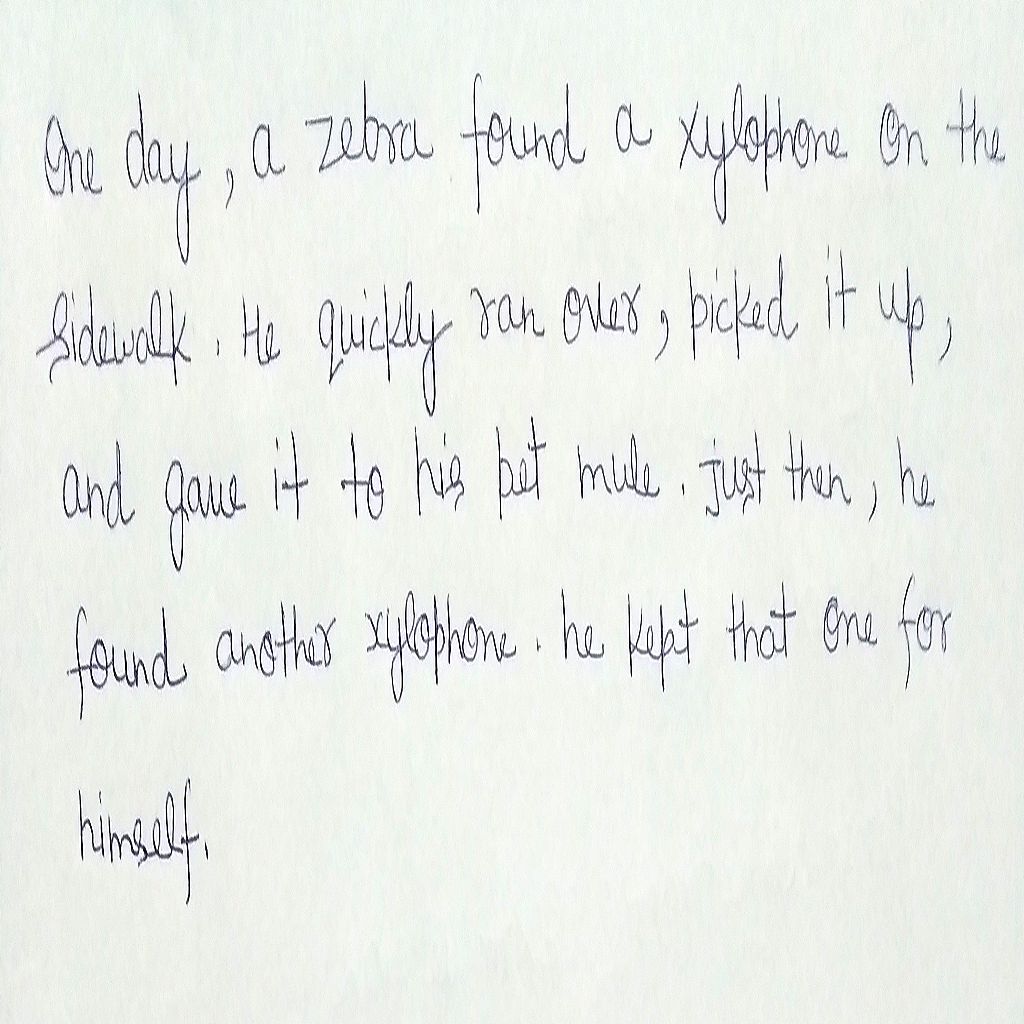 One day, a zebra found a xylophone on the
sidewalk. He quickly ran over, picked it up,
and gave it to his pet mule. just then, he
found another xylophone. he kept that one for
himself.